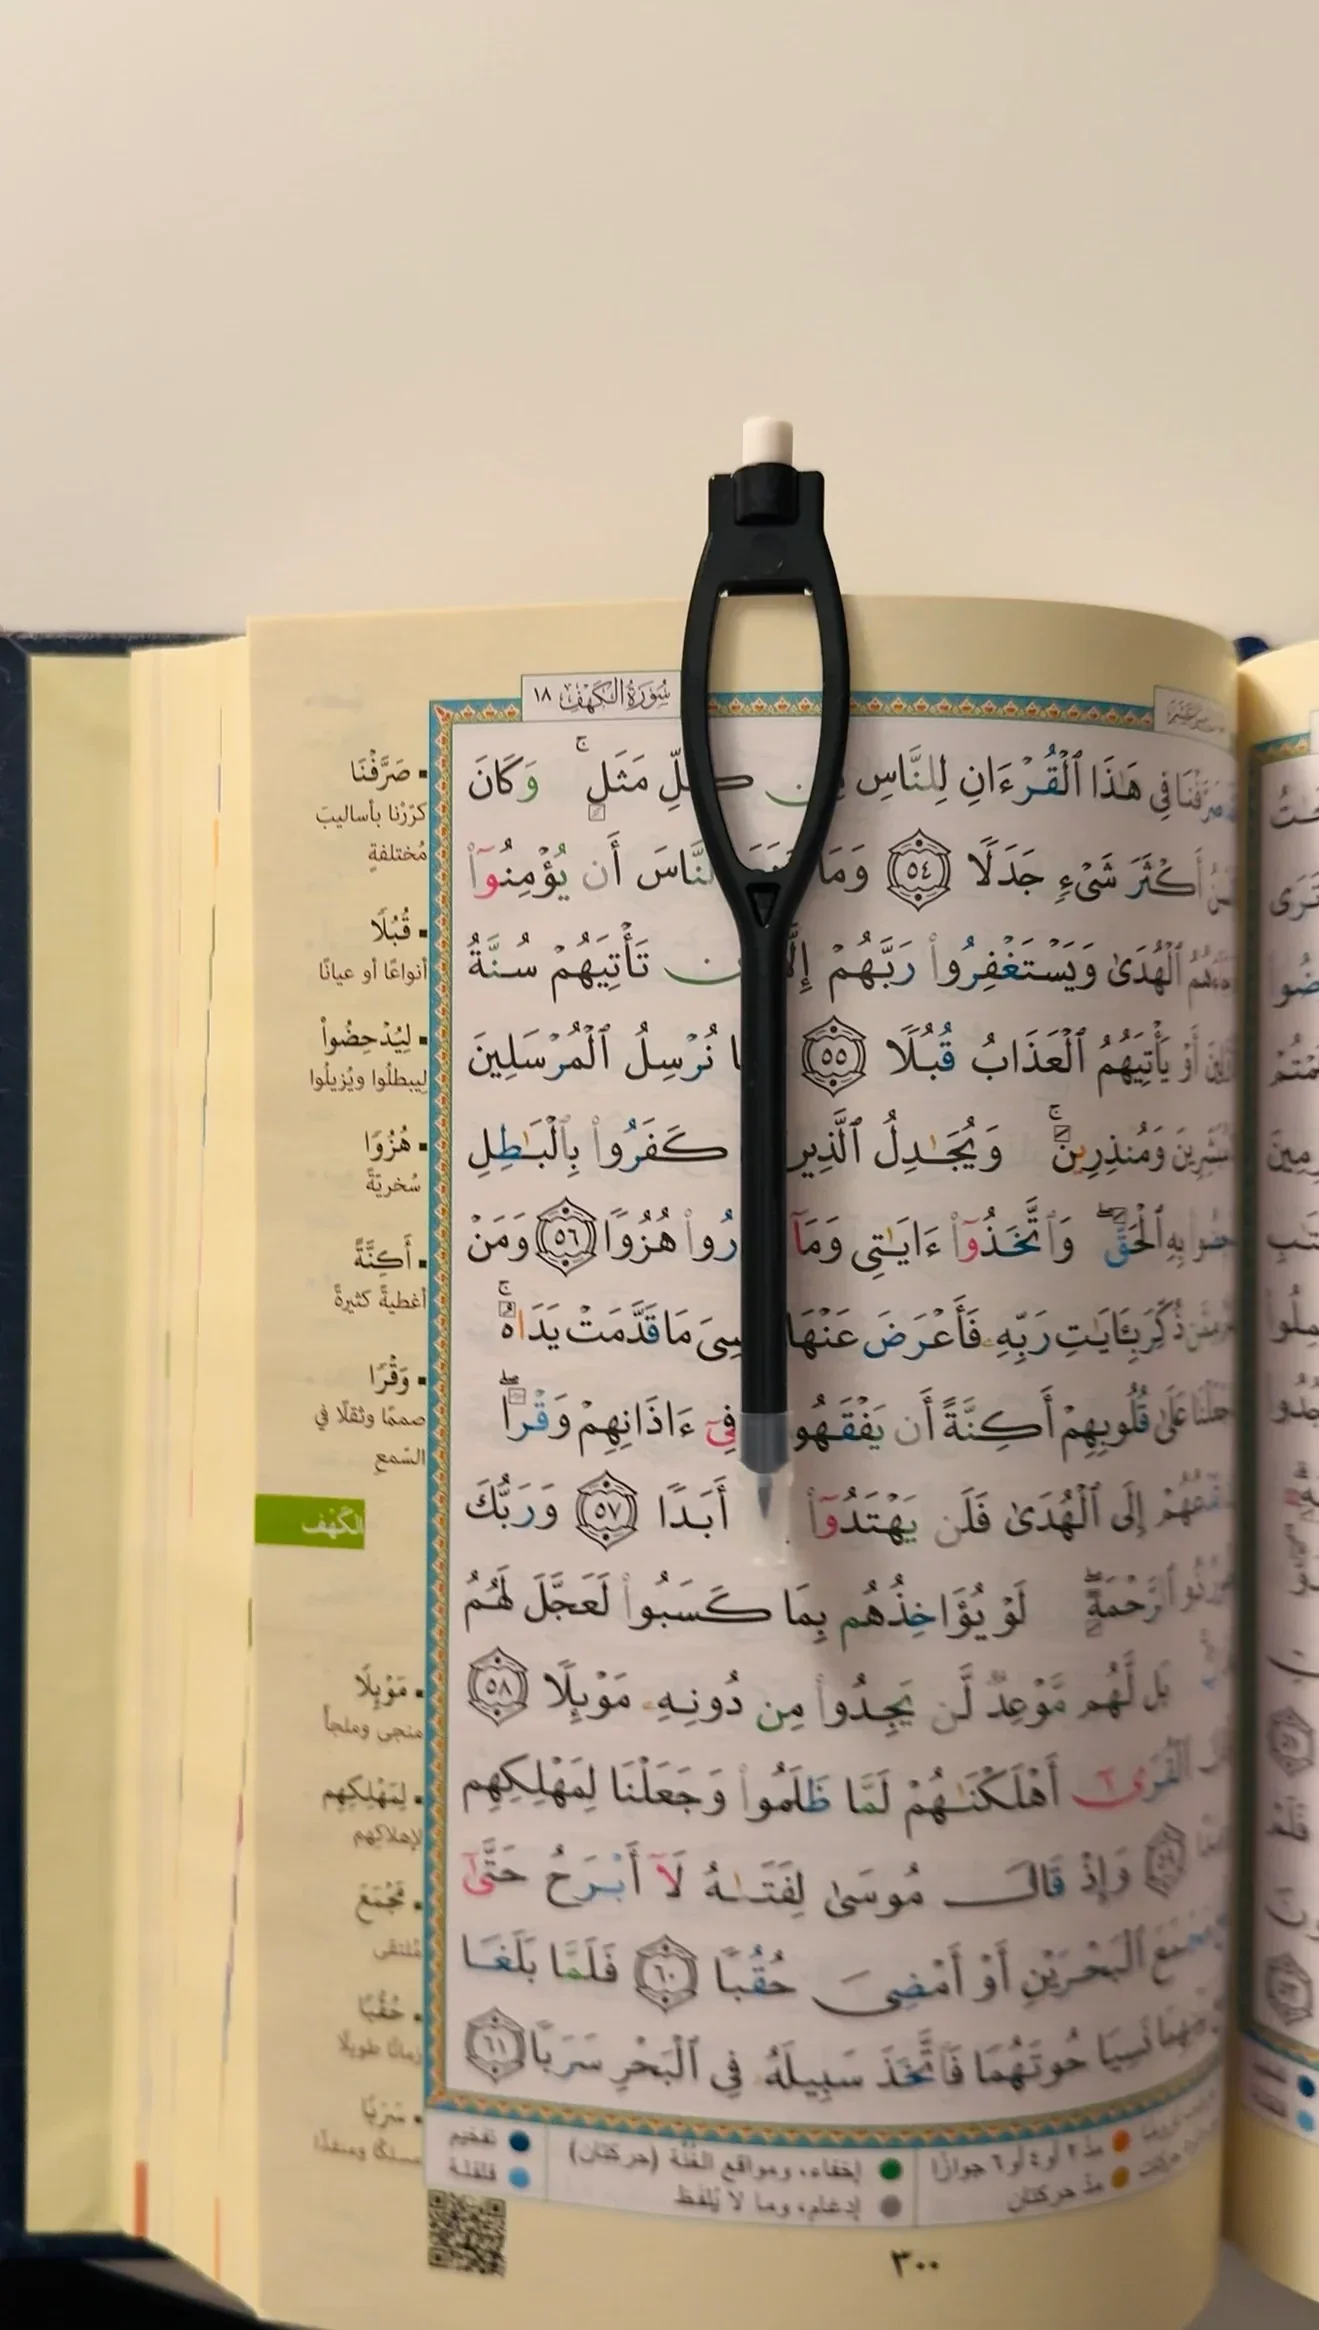 سُورَةُ الكَهْفِ ١٨
صَرَّفْنَا فِي هَٰذَا ٱلْقُرْءَانِ لِلنَّاسِ مَثَلٍ ۚ وَكَانَ
أَكْثَرَ شَىْءٍ جَدَلًا ٥٤ وَمَا ٱلنَّاسَ أَن يُؤْمِنُوٓا۟
ٱلْهُدَىٰ وَيَسْتَغْفِرُوا۟ رَبَّهُمْ تَأْتِيَهُمْ سُنَّةُ
أَوْ يَأْتِيَهُمُ ٱلْعَذَابُ قُبُلًا ٥٥ نُرْسِلُ ٱلْمُرْسَلِينَ
مُبَشِّرِينَ وَمُنذِرِينَ ۚ وَيُجَٰدِلُ كَفَرُوا۟ بِٱلْبَٰطِلِ
بِهِ ٱلْحَقَّ ۖ وَٱتَّخَذُوٓا۟ ءَايَٰتِى وَمَآ هُزُوًا ٥٦ وَمَنْ
ذُكِّرَ بِـَٔايَٰتِ رَبِّهِۦ فَأَعْرَضَ عَنْهَا مَا قَدَّمَتْ يَدَاهُ ۚ
عَلَىٰ قُلُوبِهِمْ أَكِنَّةً أَن فِىٓ ءَاذَانِهِمْ وَقْرًا ۖ
إِلَى ٱلْهُدَىٰ فَلَن يَهْتَدُوٓا۟ أَبَدًا ٥٧ وَرَبُّكَ
ٱلرَّحْمَةِ ۖ لَوْ يُؤَاخِذُهُم بِمَا كَسَبُوا۟ لَعَجَّلَ لَهُمُ
بَل لَّهُم مَّوْعِدٌ لَّن يَجِدُوا۟ مِن دُونِهِۦ مَوْئِلًا ٥٨
ٱلْقُرَىٰٓ أَهْلَكْنَٰهُمْ لَمَّا ظَلَمُوا۟ وَجَعَلْنَا لِمَهْلِكِهِم
وَإِذْ قَالَ مُوسَىٰ لِفَتَىٰهُ لَآ أَبْرَحُ حَتَّىٰٓ
مَجْمَعَ ٱلْبَحْرَيْنِ أَوْ أَمْضِىَ حُقُبًا ٦٠ فَلَمَّا بَلَغَا
نَسِيَا حُوتَهُمَا فَٱتَّخَذَ سَبِيلَهُۥ فِى ٱلْبَحْرِ سَرَبًا ٦١
صَرَّفْنَا
كرّرْنا بأساليبَ
مُختلفةٍ
قُبُلًا
أنواعًا أو عيانًا
لِيُدْحِضُوا۟
ليبطلُوا ويُزيلُوا
هُزُوًا
سُخريّةً
أَكِنَّةً
أغطيةً كثيرةً
وَقْرًا
صممًا وثقلًا في
السّمعِ
الكَهْف
مَوْئِلًا
منجى وملجأً
لِمَهْلِكِهِم
لإهلاكِهم
مَجْمَعَ
مُلتقى
حُقُبًا
زمانًا طويلًا
سَرَبًا
مسلكًا ومنفذًا
مدّ ٢ أو ٤ أو ٦ جوازًا
مدّ حركتان
إخفاء، ومواقع الغُنَّة (حركتان)
إدغام، وما لا يُلفظ
تفخيم
قلقلة
٣٠٠